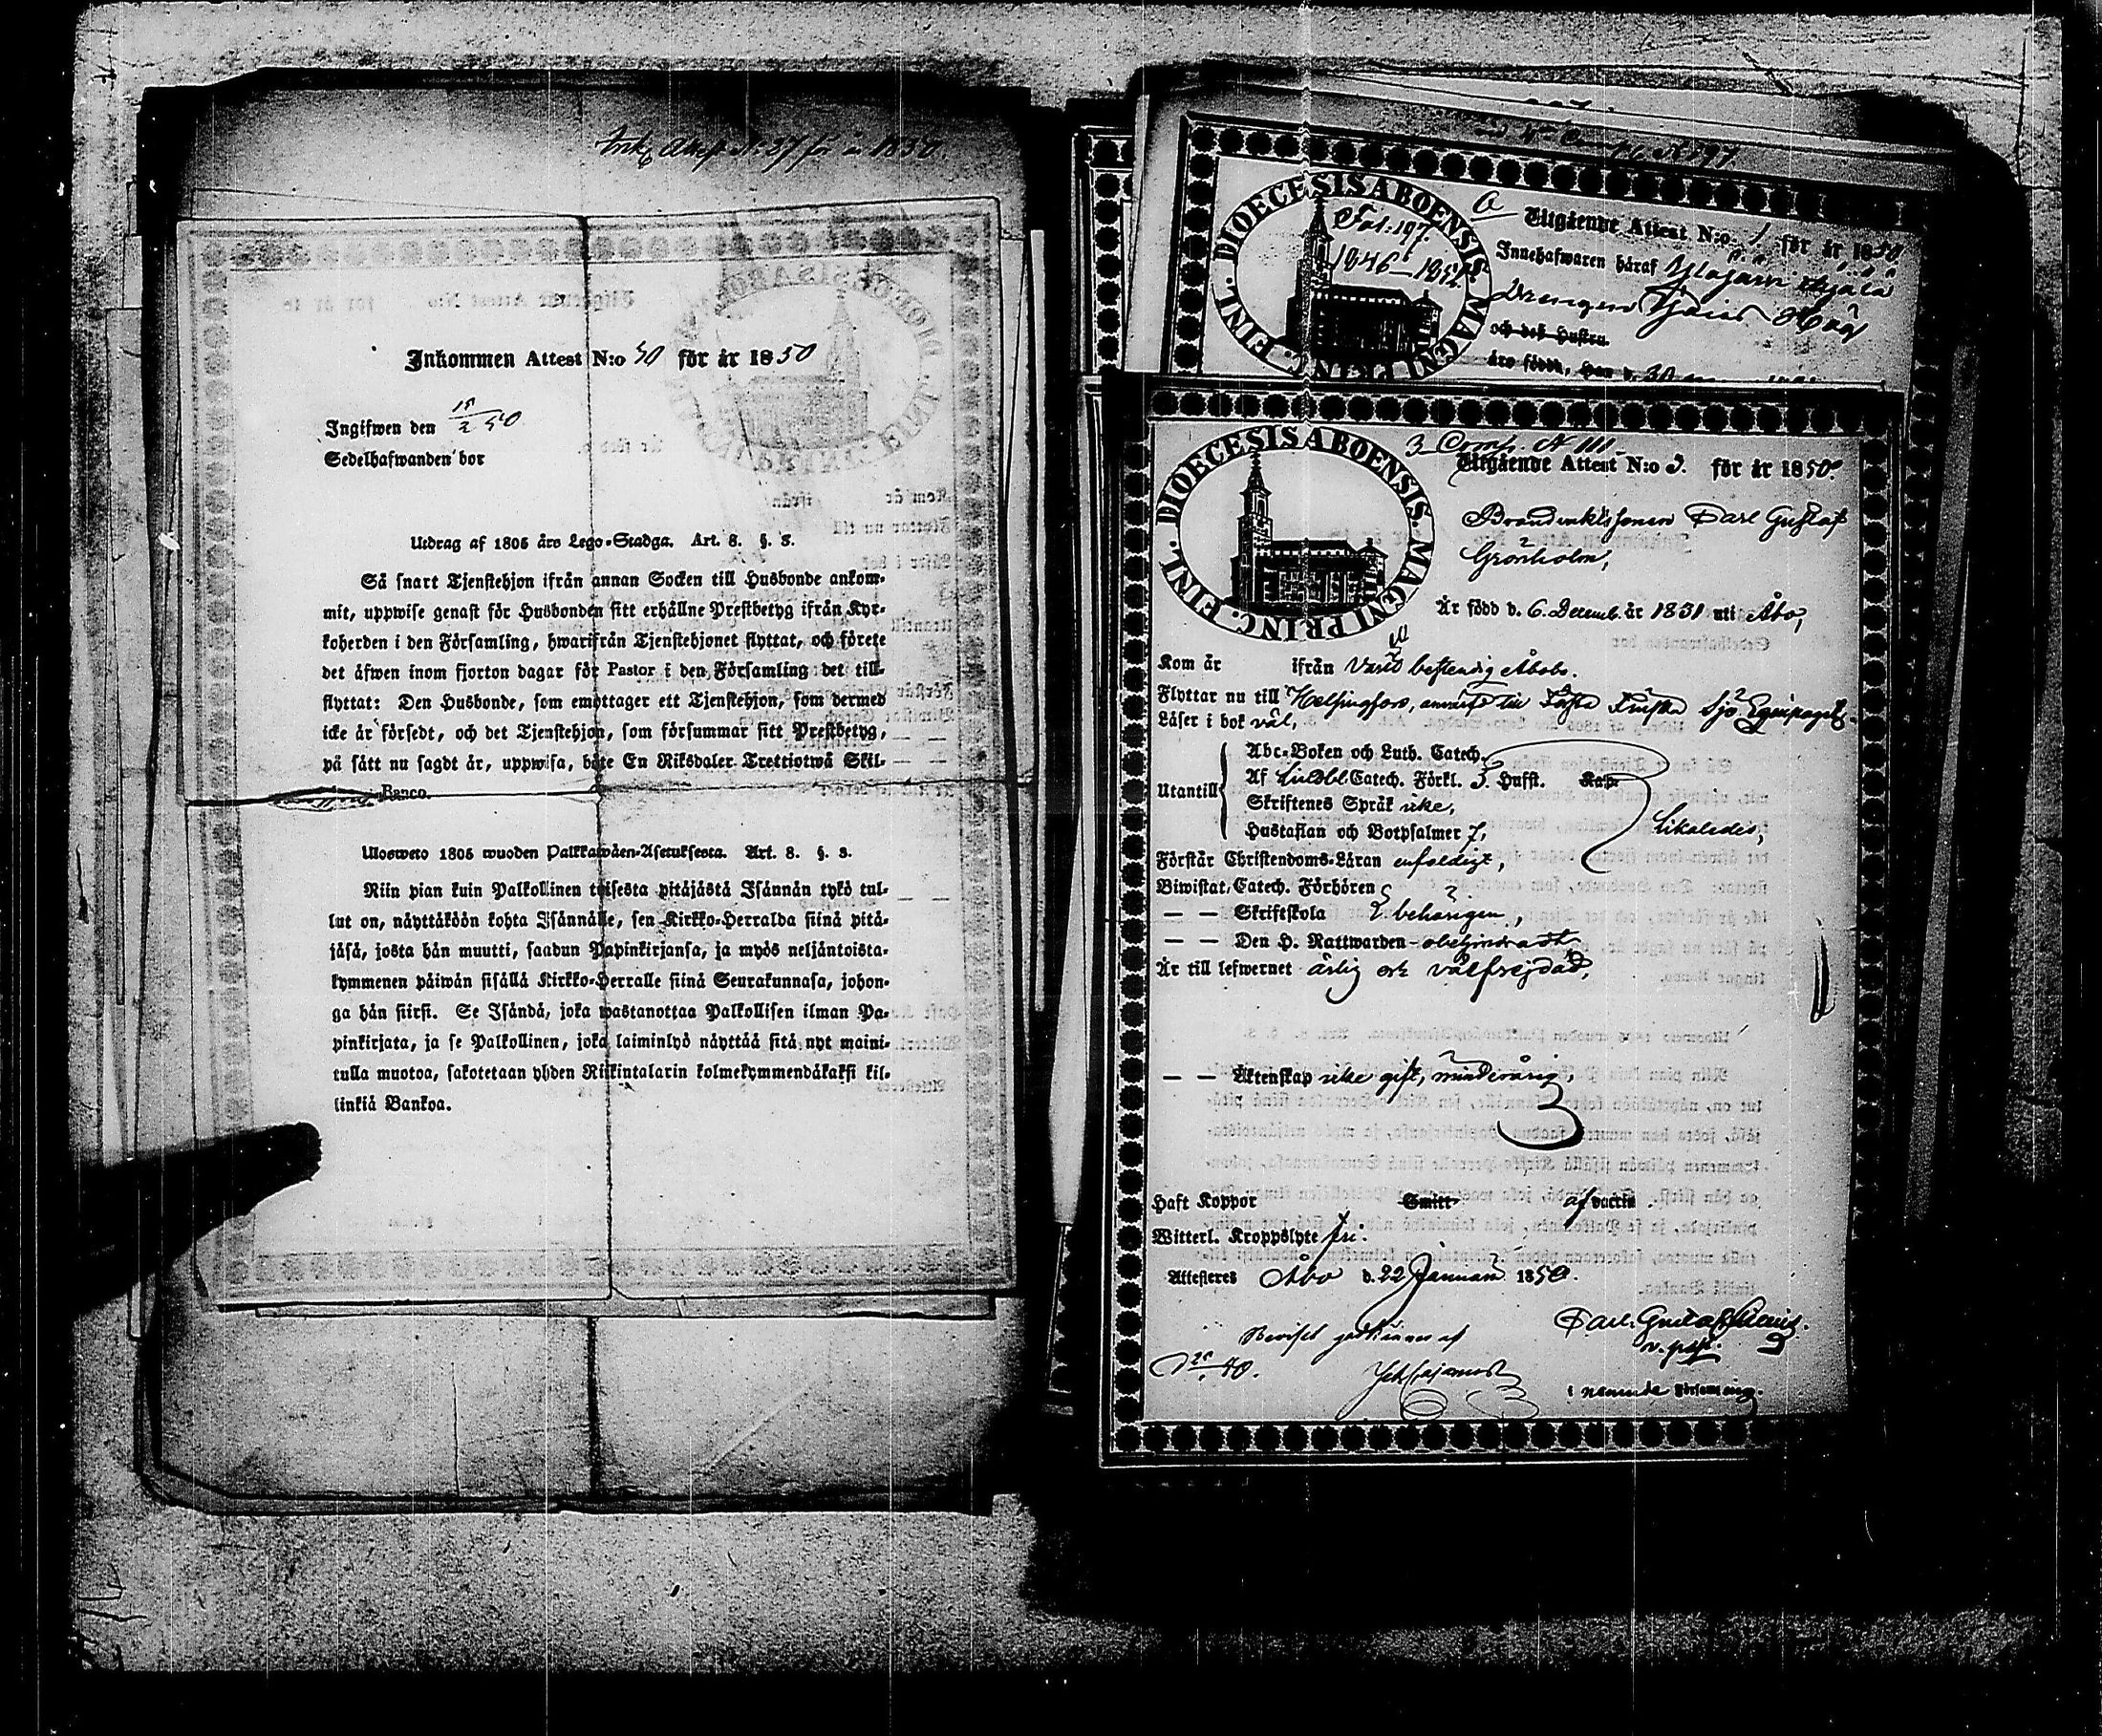 Attest N:o 37 för år 1850.
Inkommen Attest N:o 50 för år 1850
Ingifwen den 15/2 50
Sedelhafwanden bor
Utdrag af 1805 års Lego-Stadga. Art. 8. §. 3.
Så snart Tjenstehjon ifrån annan Socken till Husbonde ankom-
mit, uppwise genast för Husbonden sitt erhållne Prestbetyg ifrån Kyr-
koherden i den Församling, hwarifrån Tjenstehjonet flyttat, och förete
det äfwen inom fjorton dagar för Pastor i den Församling det till-
flyttat: Den Husbonde, som emottager ett Tjenstehjon, som dermed
icke är försedt, och det Tjenstehjon, som försummar sitt Prestbetyg,
på sätt nu sagdt är, uppwisa, böte En Riksdaler Trettiotwå Skil-
Banco.
Ulosweto 1805 wuoden Palkkawäen-Asetuksesta. Art. 8. §. 3.
Niin pian kuin Palkollinen toisesta pitäjästä Isännän tykö tul-
lut on, näyttäköön kohta Isännälle, sen Kirkko-Herralda siinä pitä-
jäsä, josta hän muutti, saadun Papinkirjansa, ja myös neljäntoista-
kymmenen päiwän sisällä Kirkko-Herralle siinä Seurakunnasa, johon-
ga hän siirsi. Se Isändä, joka wastanottaa Palkollisen ilman Pa-
pinkirjata, ja se Palkollinen, joka laiminlyö näyttää sitä nyt maini-
tulla muotoa, sakotetaan yhden Riikintalarin kolmekymmendäkaksi kil-
linkiä Bankoa.
DIOECESIS ABOENSIS. MAGNI PRINC. FINL.
Fol. 197.
1846–1852
Utgående Attest N:o 1 för år 1850
Innehafwaren häraf
Drengen
och dess Hustru
äro födde, Han d. 30
DIOECESIS ABOENSIS. MAGNI PRINC. FINL.
3 Comp. N 111
Utgående Attest N:o 3. för år 1850.
Carl Gustaf
Grönholm,
Är född d. 6 Decemb. år 1831 uti Åbo,
Kom år ifrån varit bestendig Åbobo.
Flyttar nu till Helsingfors, till Finska Sjö Equipaget.
Läser i bok väl,
Utantill
Abc-Boken och Luth. Catech.
Af Catech. Förkl. 3. Hufst. Kap.
Skriftenes Språk icke,
Hustaflan och Botpsalmer 7,
likaledes,
Förstår Christendoms-Läran enfaldigt,
Biwistat Catech. Förhören
— — Skriftskola behörigen,
— — Den H. Nattwarden obehindradt
Är till lefwernet ärlig och välfrejdad,
— — Äktenskap icke gift, minderårig,
Haft Koppor Smitt- af vaccin.
Witterl. Kroppslyte fri.
Attesteres Åbo d. 22 Januari 1850.
Beviset godkännes af
Carl Gustaf
v. past.
i nämnde Församling.